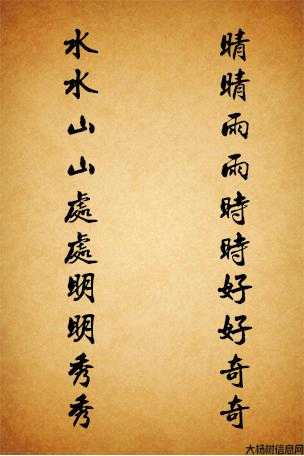 晴晴雨雨時時好好奇奇
水水山山處處明明秀秀
大杨树信息网